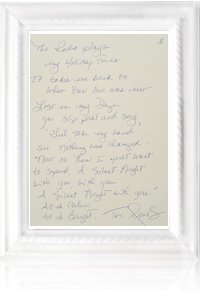 5
The Radio plays
my Holiday Tunes
It takes me back to
when our love was new
Lost in my Days
you slip past and say,
"Just take my hand
see nothing has changed
Now I just want
to spend A Silent Night
with you with you
A Silent Night with you"
All is Calm
All is Bright.